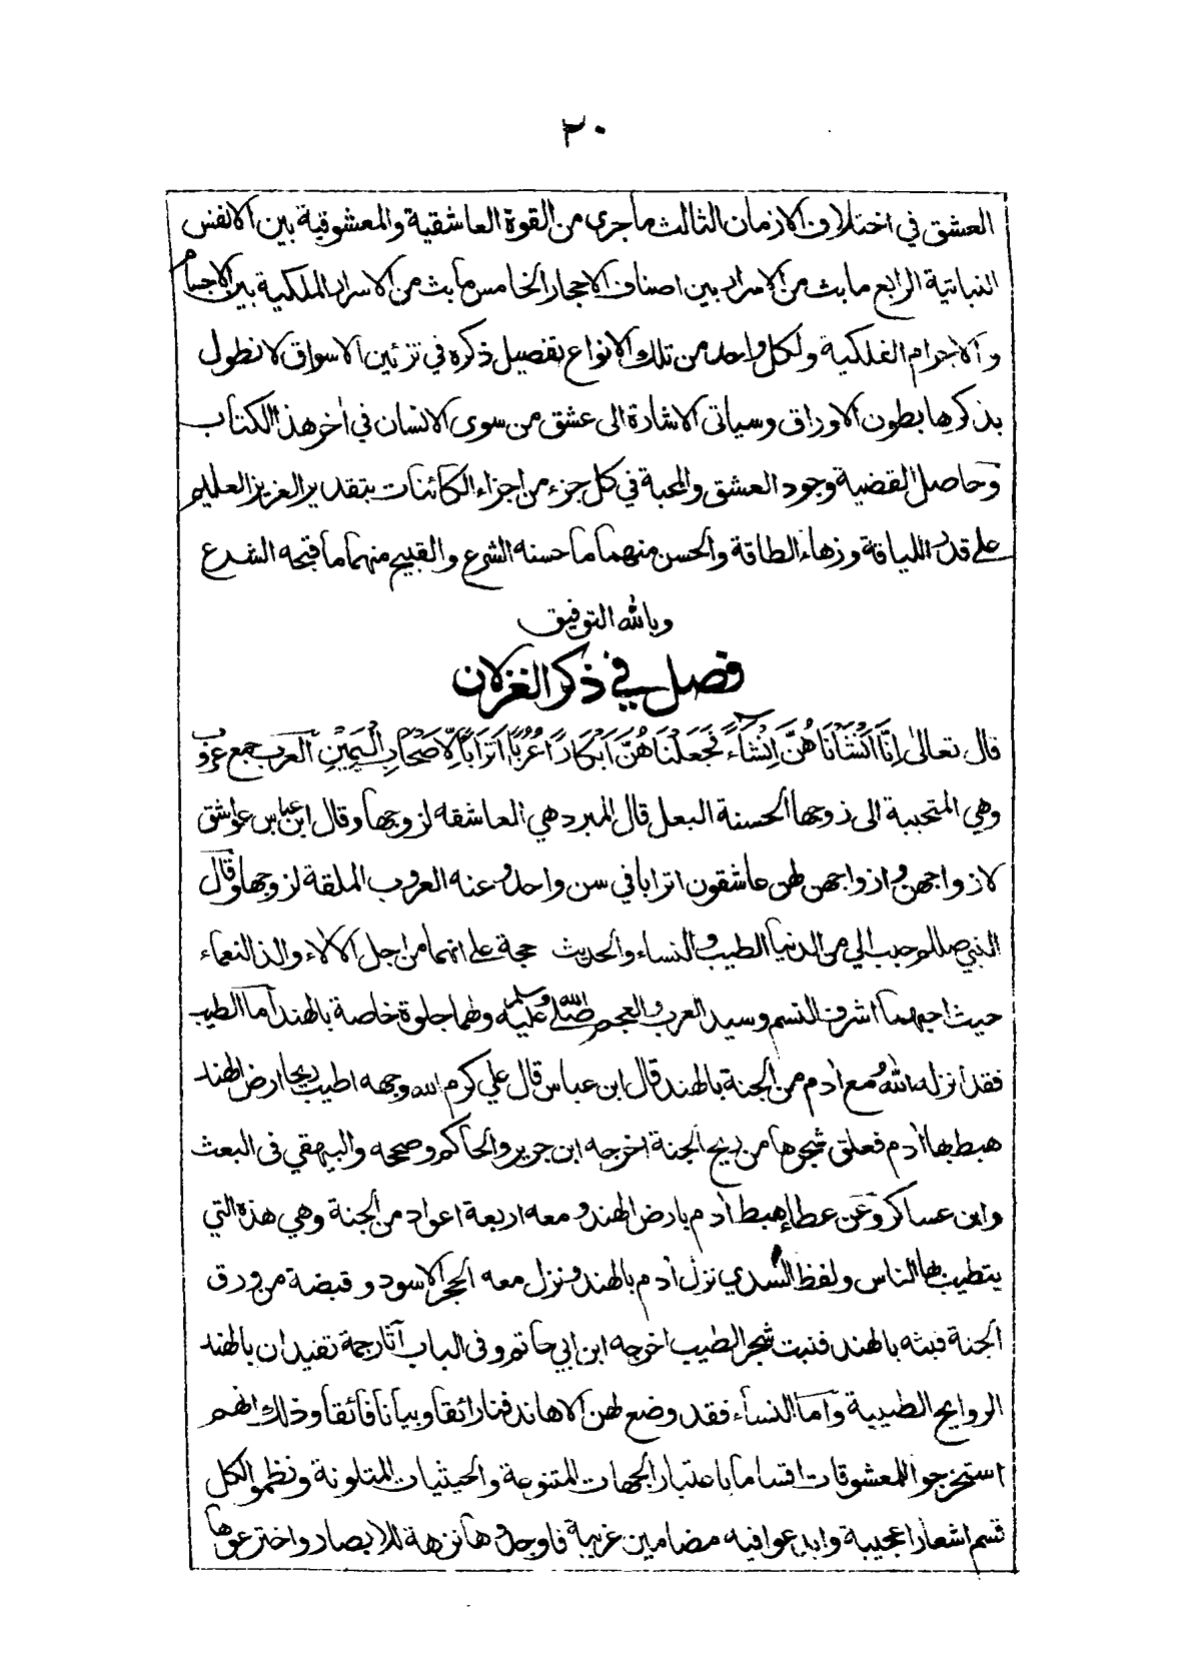 ٢٠
العشق في اختلاف الازمان الثالث ماجرى من القوة العاشقية والمعشوقية بين الانفس
النباتية الرابع ما بث من الاسرار بين اصناف الاحجار الخامس ما بث من الاسرار الملكية بين الاجسام
والاجرام الفلكية ولكل واحد من تلك الانواع تفصيل ذكره في تزئين الاسواق لا نطول
بذكرها بطون الاوراق وسياتى الاشارة الى عشق من سوى الانسان في اٰخر هذا الكتاب
وحاصل القضية وجود العشق والمحبة في كل جزء من اجزاء الكائنات بتقدير العزيز العليم
على قدر اللياقة وزهاء الطاقة والحسن منهما ما حسنه الشرع والقبيح منهما ما قبحه الشرع
وبالله التوفيق
فصل في ذكر الغزلان
قال تعالى اِنَّا اَنْشَأْنَاهُنَّ اِنْشَآءً فَجَعَلْنَاهُنَّ اَبْكَارًا عُرُبًا اَتْرَابًا لِّاَصْحَابِ الْيَمِيْنِ العرب جمع عروب
وهي المتحببة الى زوجها الحسنة البعل قال المبرد هي العاشقه لزوجها وقال ابن عباس عواشق
لازواجهن وازواجهن لهن عاشقون اترابا في سن واحد وعنه العروب الملقة لزوجها وقال
النبي صللم حبب الي من الدنيا الطيب والنساء والحديث حجة على انهما من اجل الالاء والذ النعماء
حيث احبهما اشرف النسم وسيد العرب والعجم صلى الله عليه وسلم ولهما جلوة خاصة بالهند اما الطيب
فقد انزله الله مع اٰدم من الجنة بالهند قال ابن عباس قال علي كرم الله وجهه اطيب ريحا ارض الهند
هبط بها اٰدم فعلق شجرها من ريح الجنة اخرجه ابن جرير والحاكم وصححه والبيهقي فى البعث
وابن عساكر وعن عطاء هبط اٰدم بارض الهند ومعه اربعة اعواد من الجنة وهي هذه التي
يتطيب بها الناس ولفظ السدي نزل اٰدم بالهند ونزل معه الحجر الاسود وقبضة من ورق
الجنة فبثه بالهند فنبت شجر الطيب اخرجه ابن ابي حاتم وفى الباب اٰثار جمة تفيد ان بالهند
الروايح الطيبة واما النساء فقد وضع لهن الاهاند فنا رائقا وبيانا فائقا وذلك انهم
استخرجوا للمعشوقات اقساما باعتبار الجهات المتنوعة والحيثيات المتلونة ونظموا لكل
قسم اشعارا عجيبة وابدعوا فيه مضامين غريبة فاوجدوها نزهة للابصار واخترعوها